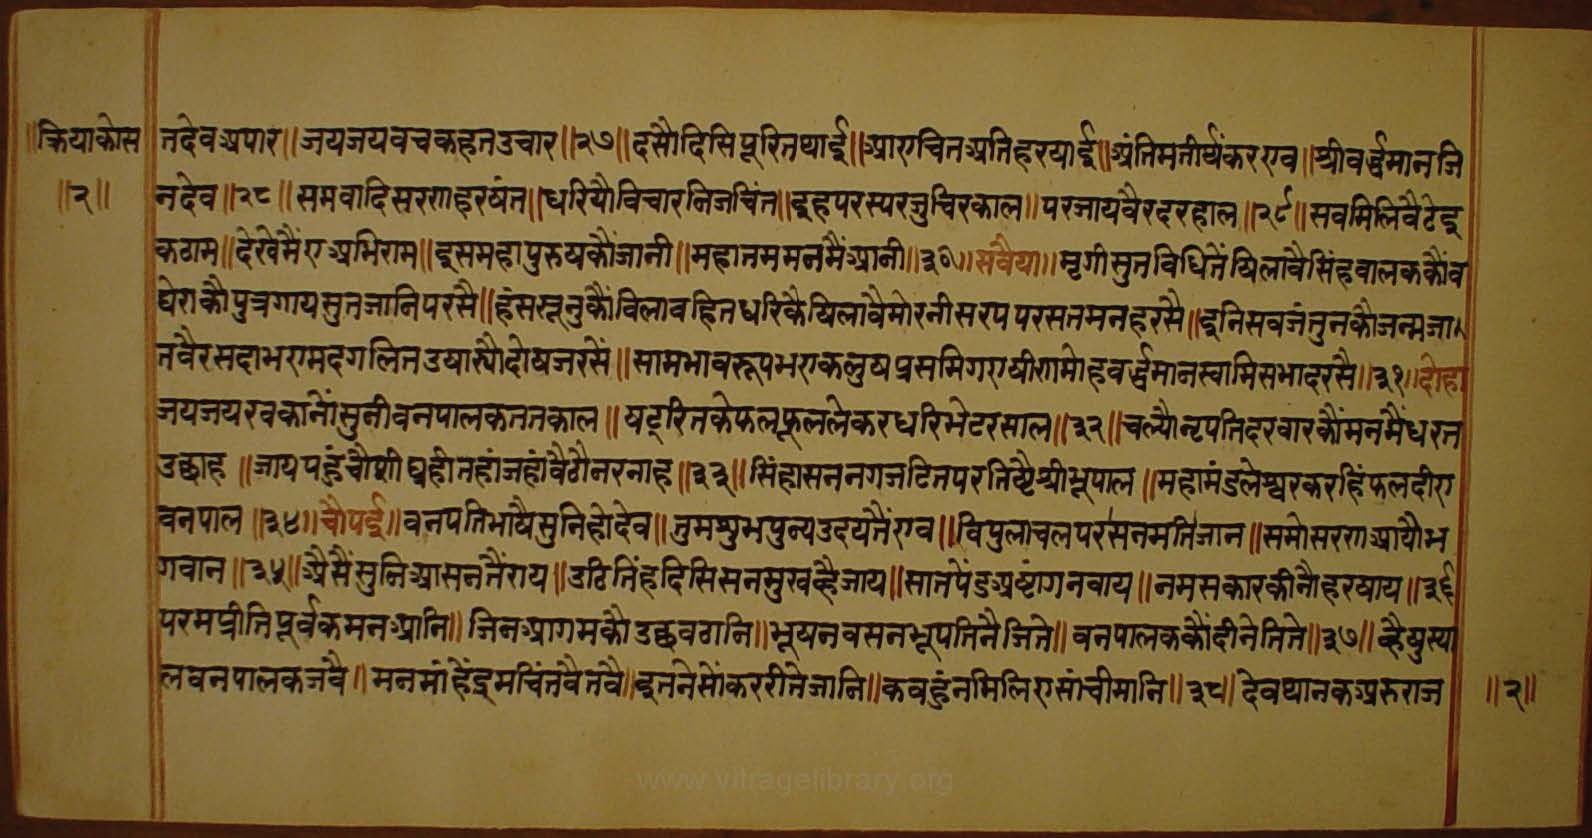 ॥क्रियाकोस
॥२॥
तदेवअपार॥जयजयवचकहतउचार॥२७॥दसौदिसिपूरितथाई॥प्राणचितअतिहरषाई॥अंतिमतीर्थंकरएव॥श्रीवर्द्धमानजि
नदेव॥२८॥समवादिसरणहरषंत॥धरियौविचारनिजचिंत॥इहपरस्परजुचिरकाल॥परजायवैरदरहाल॥२९॥सवमिलिवैठेइ
कठाम॥देखेमैंएअभिराम॥इसमहापुरुषकौंजानी॥महातममनमैंआनी॥३०॥सवैया॥मृगीसुतविधितैंषिलावैसिंहवालककौंव
घेराकौपुत्रगायसुतजानिपरसै॥हंससूनुकौंविलावहितधरिकैषिलावैमोरनीसरपपरसतमनहरसै॥इनिसवजंतुनकौजन्मजा
तवैरसदाभरामदगलितउषार्‍यौदोषजरसें॥सामभावरूपभएकलुषप्रसमिगएषीणमोहवर्द्धमानस्वामिसभादरसै॥३१॥दोहा
जयजयरवकानौंसुनीवनपालकततकाल॥षट्रितकेफलफूललेकरधरिभेटरसाल॥३२॥चल्यौनृपतिदरवारकौंमनमैंधरत
उछाह॥जायपहुंचौशीघ्रहीतहांजहांवैठौनरनाह॥३३॥सिंहासननगजटितपरतिष्ठैश्रीभूपाल॥महामंडलेश्वरकरहिंफलदीए
वनपाल॥३४॥चौपई॥वनपतिभाषैसुनिहोदेव॥तुमशुभपुन्यउदयतैंएव॥विपुलाचलपरसनमतिजान॥समोसरणआयौभ
गवान॥३५॥अैसैंसुनिआसनतैंराय॥उठितिंहदिसिसनमुखव्हैजाय॥सातपेंडअष्टांगनवाय॥नमसकारकीनौहरषाय॥३६
परमप्रीतिपूर्वकमनआनि॥जिनआगमकौउछवठानि॥भूषनवसनभूपतिनैजिते॥वनपालककौंदीनेतिते॥३७॥व्हैषुस्या
लवनपालकजवै॥मनमांहेंइमचिंतवैतवै॥इतनेसौंकररीतेजानि॥कवहुंनमिलिएसांचीमानि॥३८॥देवथानकअरुराज
॥२॥
www.vitragelibrary.org